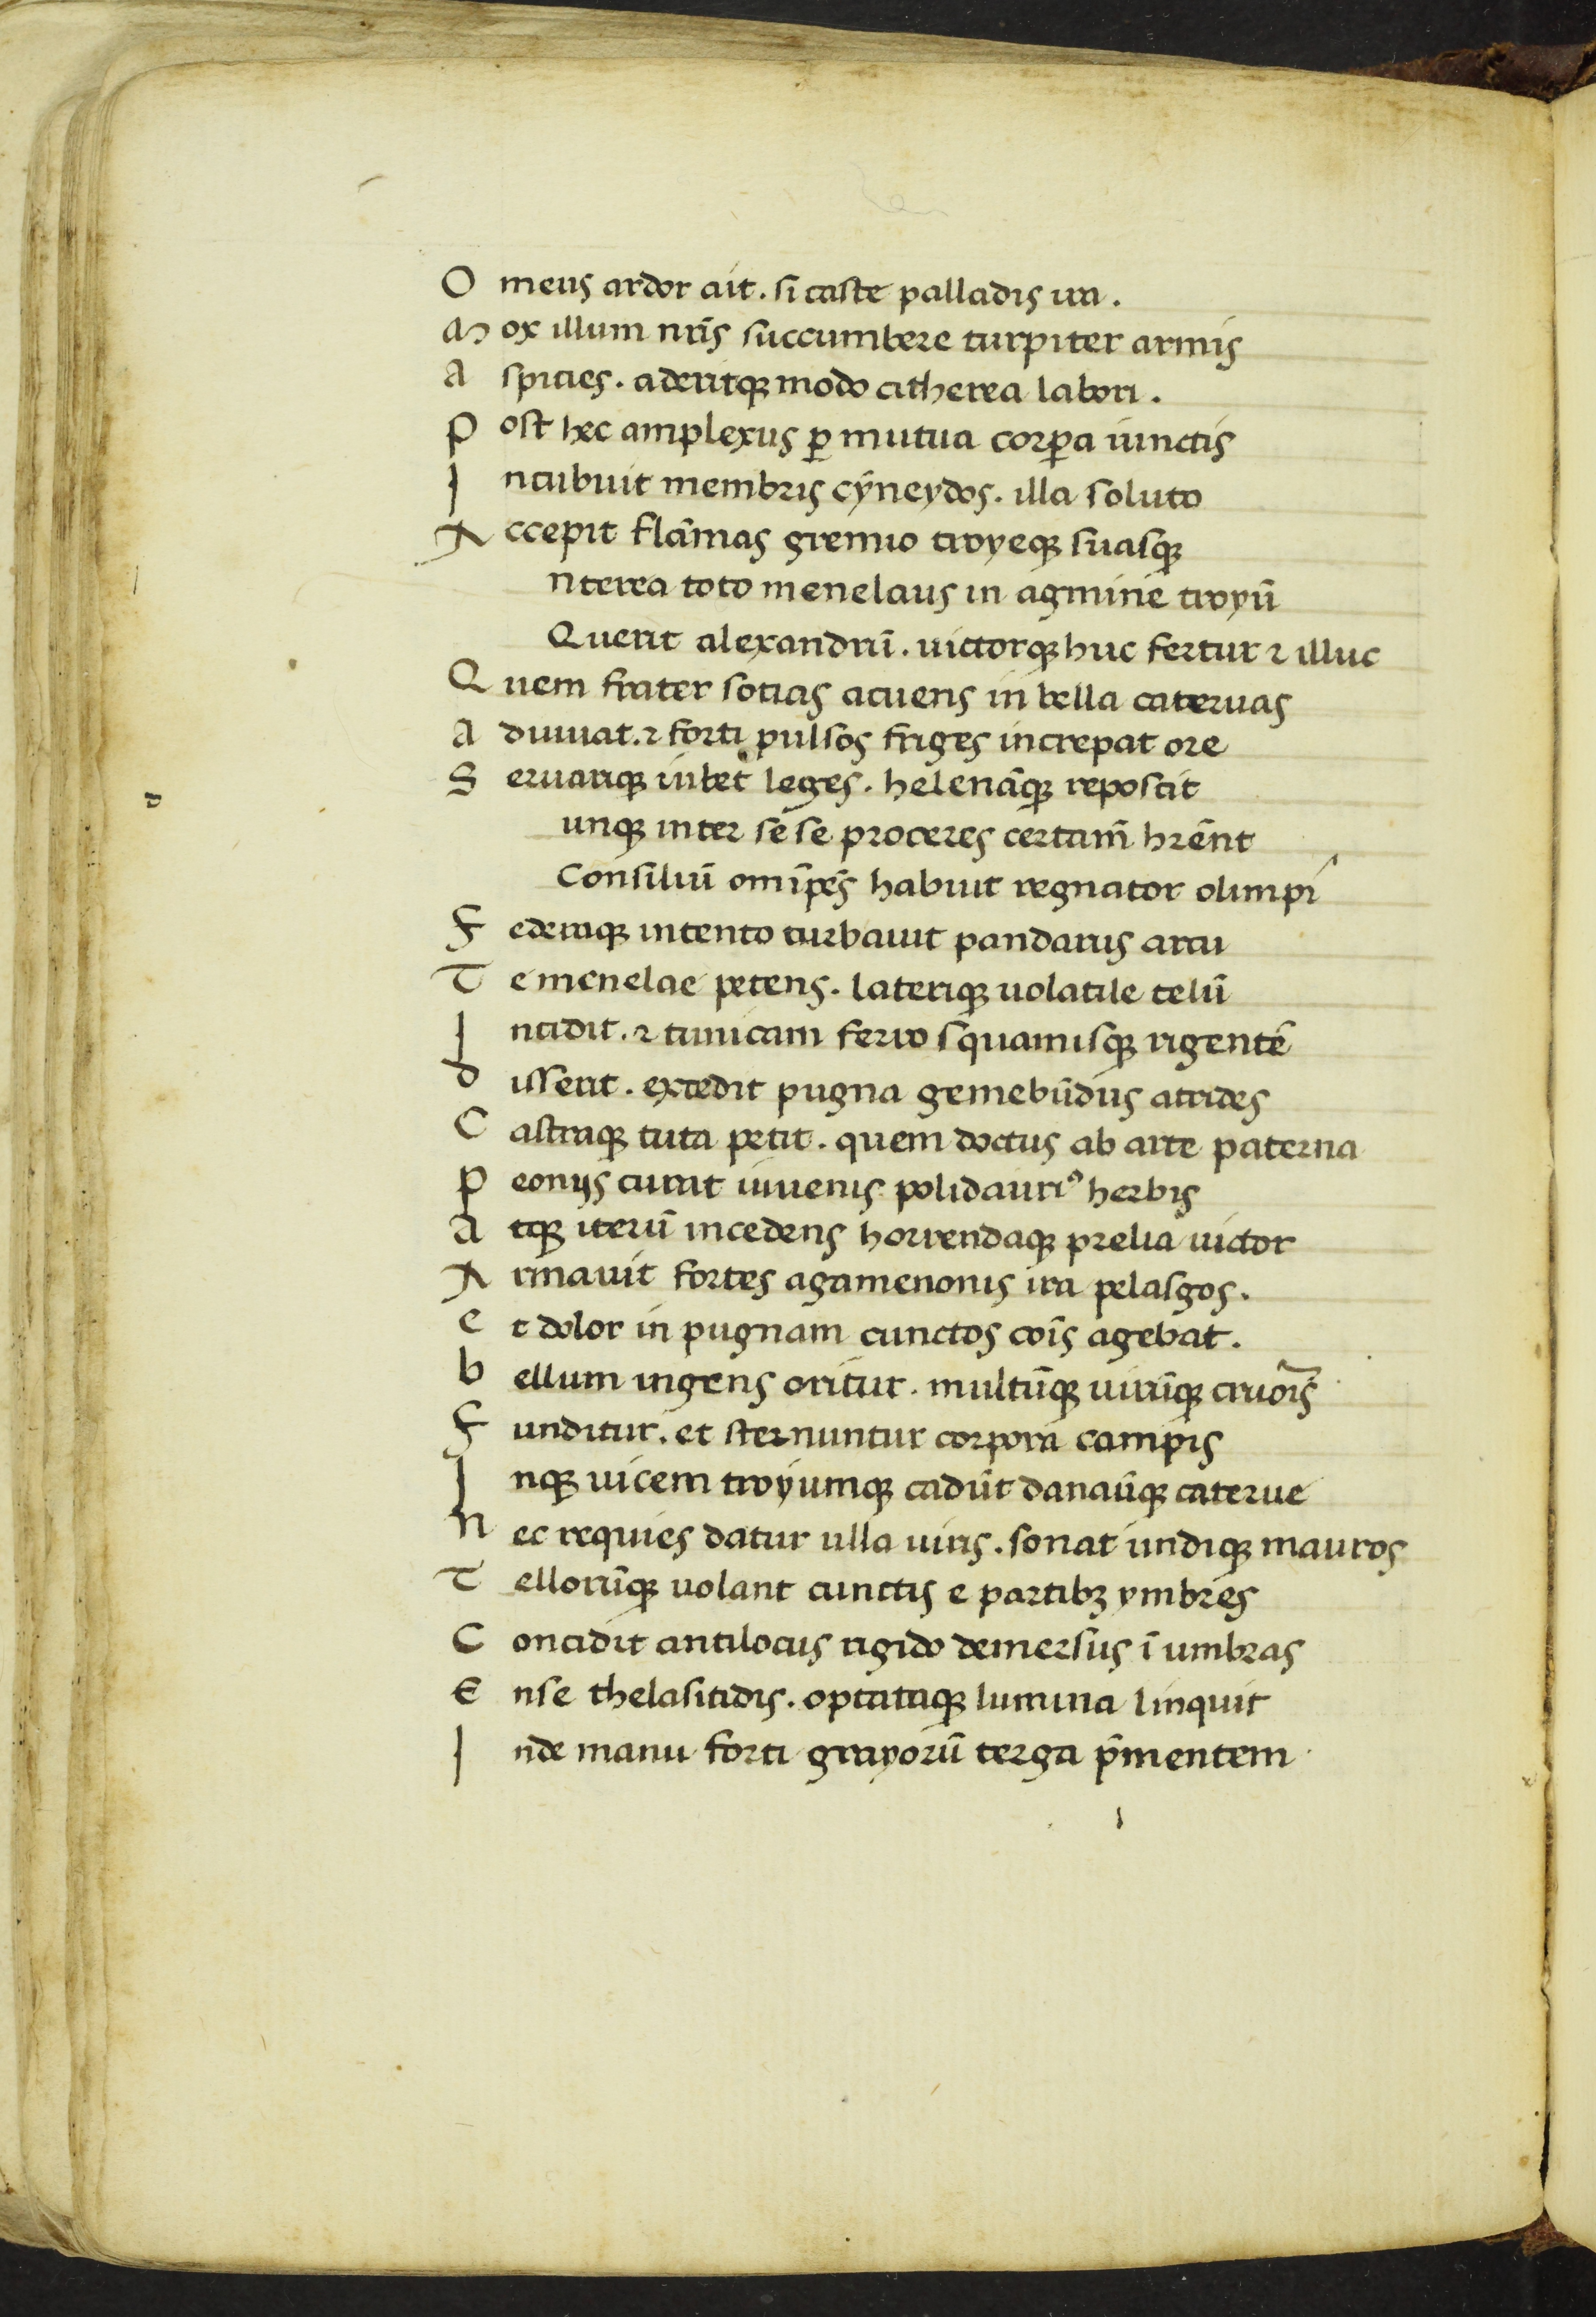 O meus ardor ait . si caste palladis ira .
M ox illum nr̄is succumbere turpiter armis
A spicies . aderitqꝫ modo citherea labori .
P ost hec amplexus ꝑ mutua corꝑa iunctis
I ncubuit membris cyneydos . illa soluto
A ccepit flāmas gremio troyeqꝫ suasqꝫ
nterea toto menelaus in agmine troyū
Querit alexandrū . uictorqꝫ huc fertur ⁊ illuc
Q uem frater socias acuens in bella cateruas
A diuuat . ⁊ forti pulsos friges increpat ore
S eruariqꝫ iubet leges . helenāqꝫ reposcit
unqꝫ inter sese proceres certam̄ hr̄ent
Consiliū om̄ip̄s habuit regnator olimpi
F ederaqꝫ intento turbauit pandarus arcu
T e menelae petens . lateriqꝫ uolatile telū
I ncidit . ⁊ tunicam ferro squamisqꝫ rigentē
D isserit . excedit pugna gemebūdus atrides
C astraqꝫ tuta petit . quem doctus ab arte paterna
P eonijs curat iuuenis polidauriꝰ herbis
A tqꝫ iterū incedens horrendaqꝫ prelia uictor
A rmauit fortes agamenonis ira pelasgos .
E t dolor in pugnam cunctos cōis agebat .
B ellum ingens oritur . multūqꝫ uirūqꝫ cruor̄is
F unditur . et sternuntur corpora campis
I nqꝫ uicem troyumqꝫ cadūt danaūqꝫ caterue
N ec requies datur ulla uiris . sonat undiqꝫ mauros
T ellorūqꝫ uolant cunctis e partibꝫ ymbres
C oncidit antilocus rigido demersus ī umbras
E nse thelasitidis . optataqꝫ lumina linquit
I nde manu forti grayorū terga p̄mentem